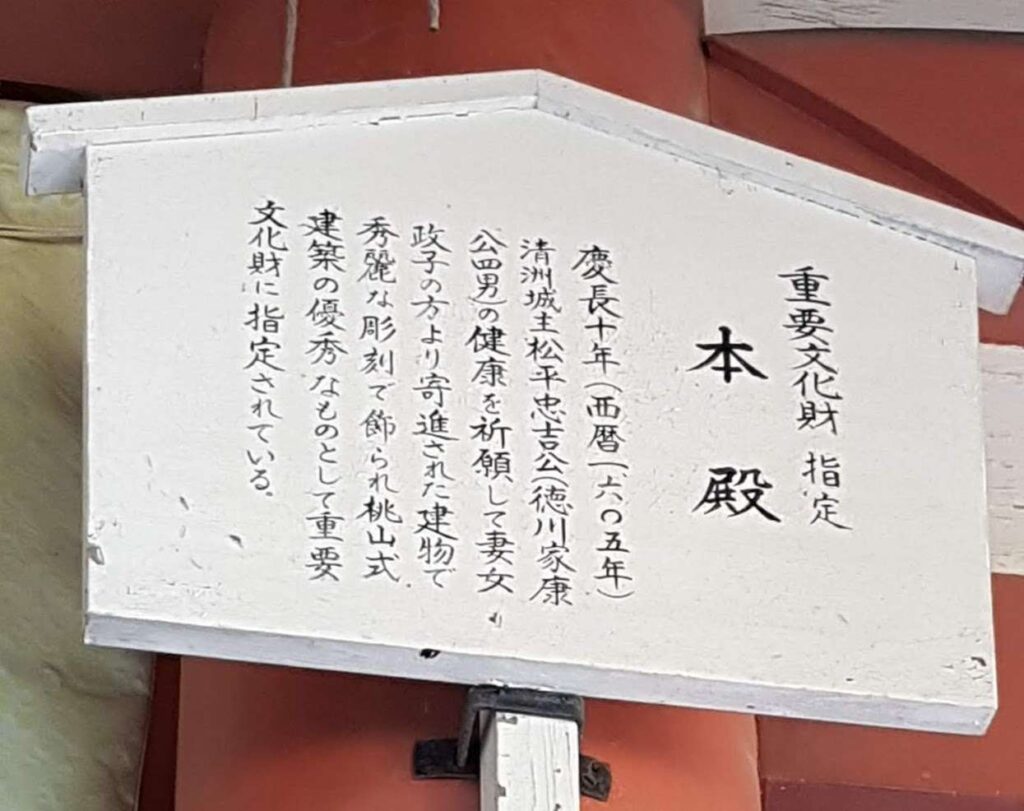 重要文化財 指定
本殿
慶長十年(西暦一六〇五年)
清洲城主松平忠吉公(徳川家康
公四男)の健康を祈願して妻女
政子の方より寄進された建物で
秀麗な彫刻で飾られ桃山式
建築の優秀なものとして重要
文化財に指定されている。